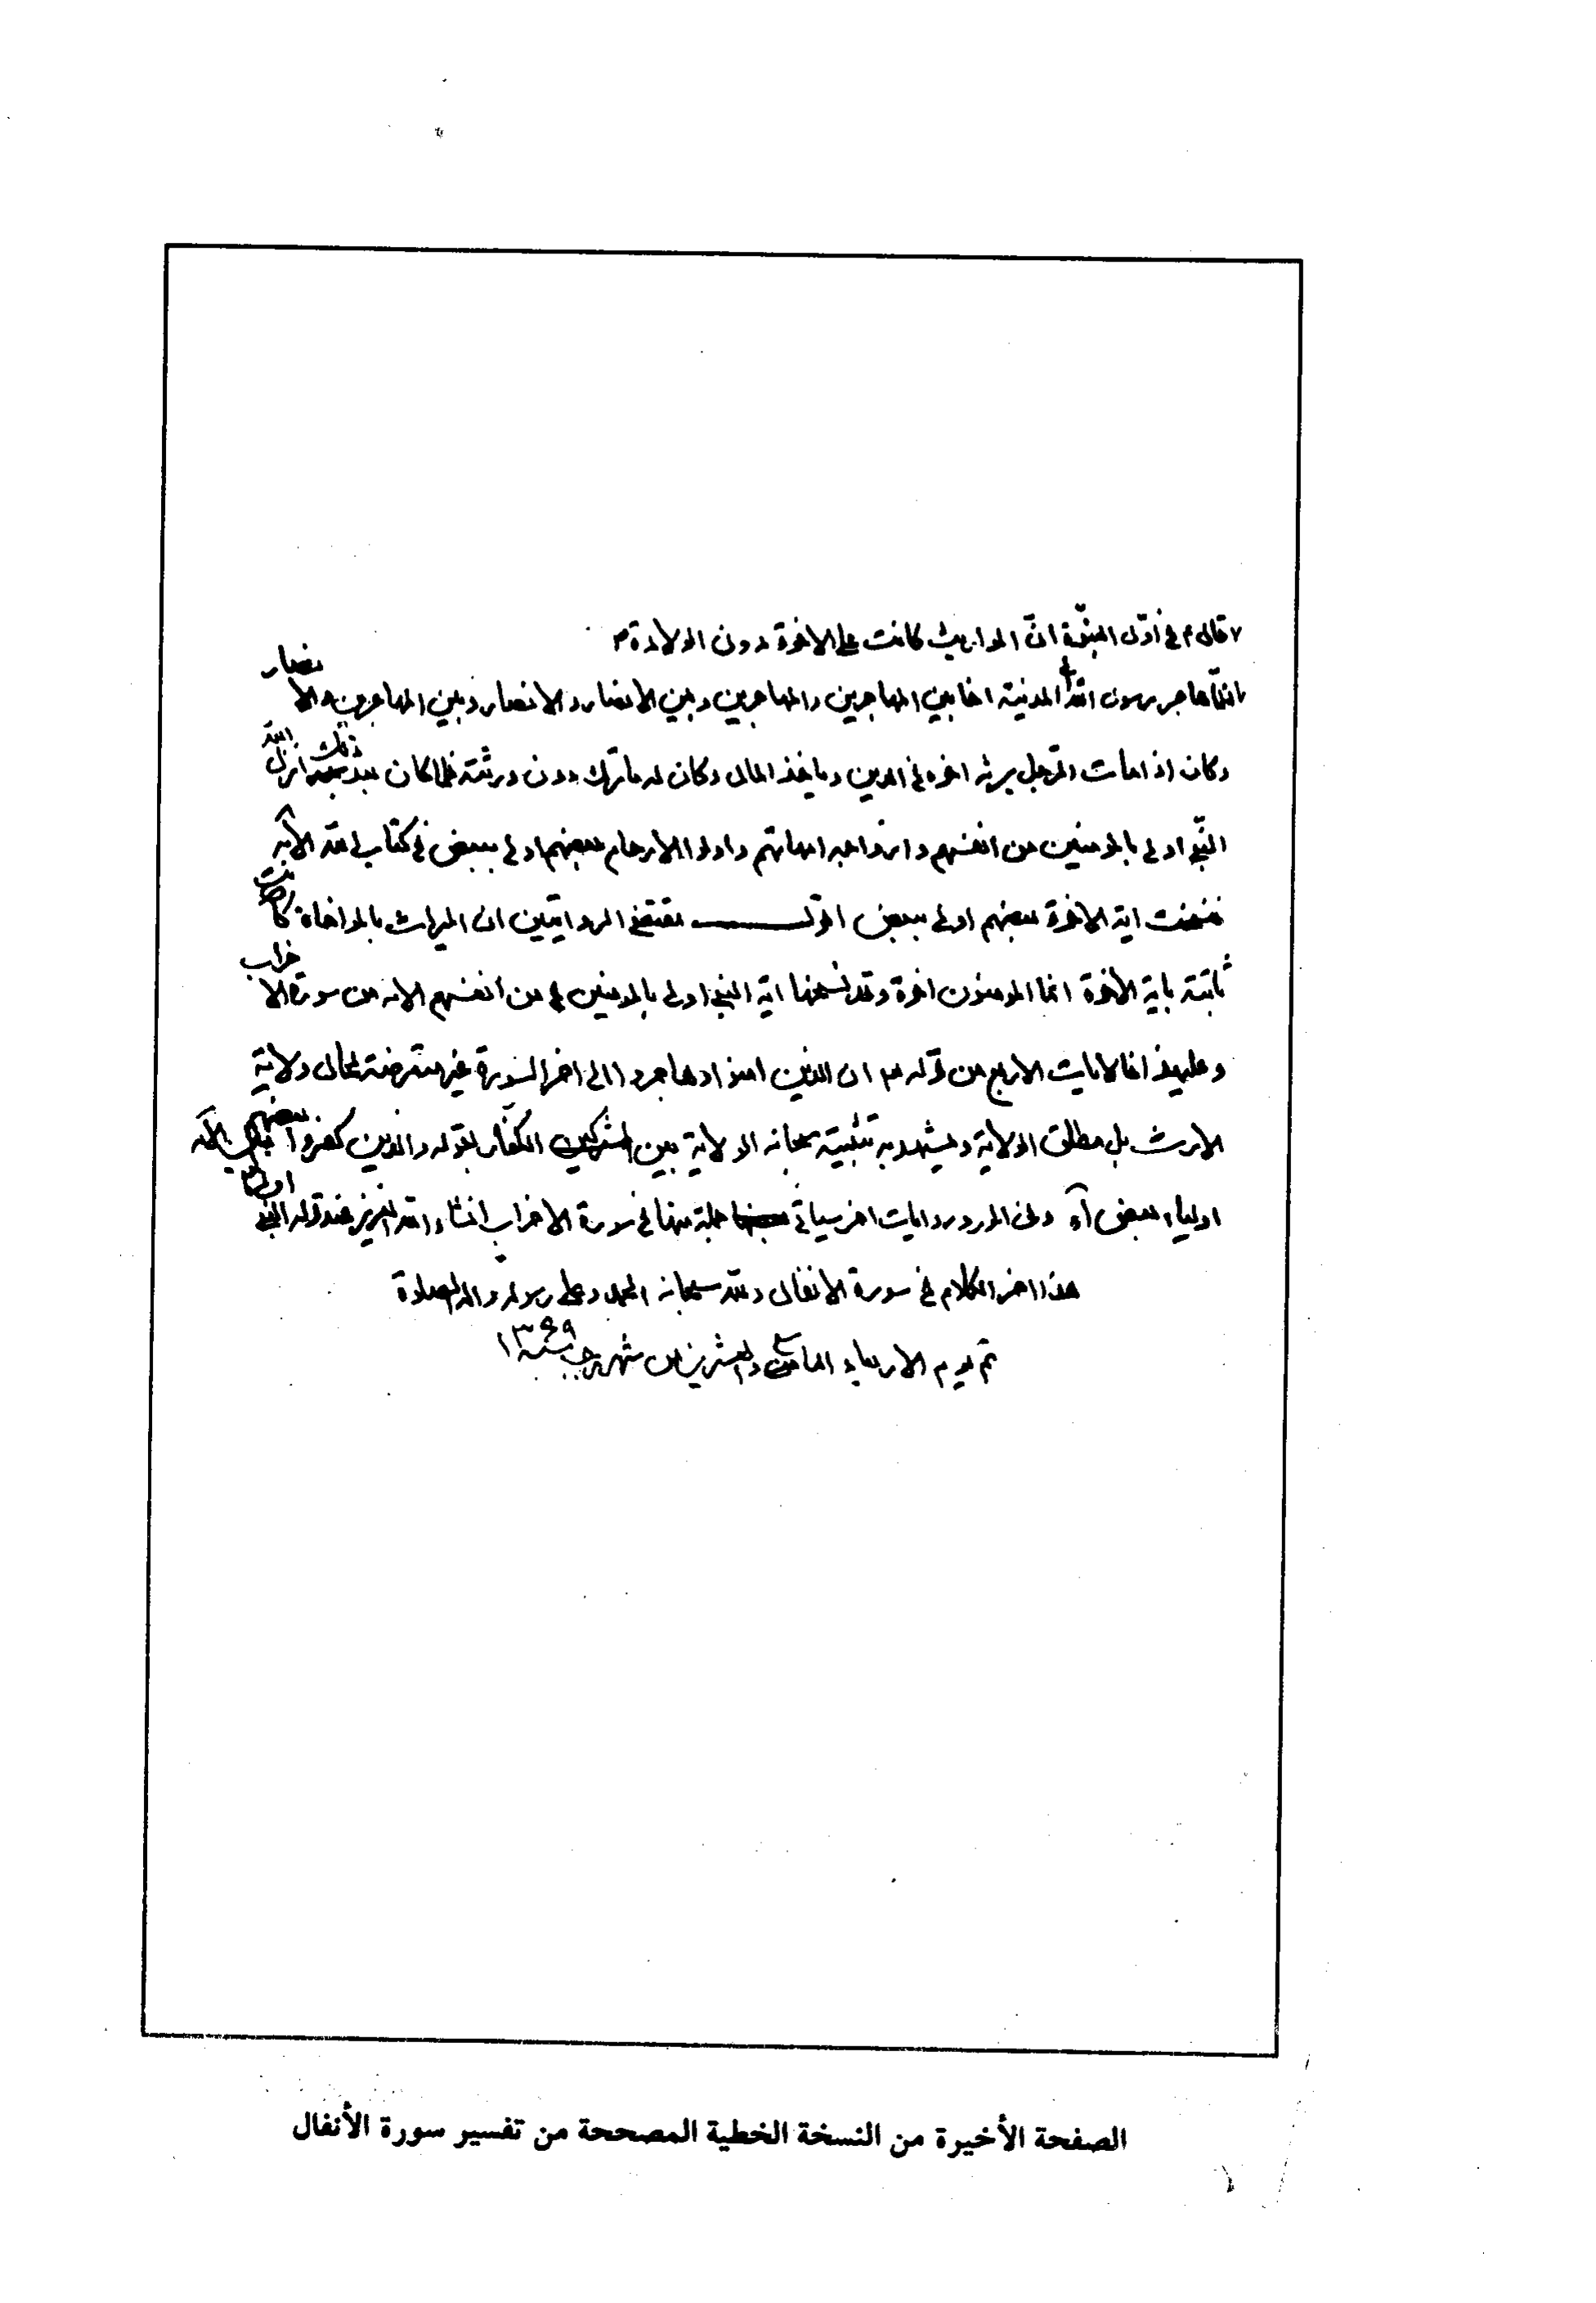 قال ع في أوّل النبوّة انّ المواريث كانت على الاخوة دون الولادة
فلمّا هاجر رسول الله الى المدينة اخا بين المهاجرين والمهاجرين وبين الانصار والانصار وبين المهاجرين والانصار
وكان اذا مات الرجل يرثه اخوه في الدين وياخذ المال وكان له ما ترك دون ورثته فلما كان بعد ذلك انزل الله
النبيّ اولى بالمومنين من انفسهم وازواجه امهاتهم واولوا الارحام بعضهم اولى ببعض في كتاب الله الآية
فنسخت اية الاخوة بعضهم اولى ببعض اقول مقتضى الروايتين ان الميراث بالمواخاة كانت
ثابتة باية الاخوة انما المومنون اخوة وقد نسخها اية النبي اولى بالمومنين من انفسهم الايه من سورة الاحزاب
وعليهذا فالايات الاربع من قوله ان الذين امنوا وهاجروا الى اخر السورة غير متعرضة لحال ولاية
الارث بل مطلق الولاية ويشهد به تثبيته سبحانه الولاية بين الكفّار بقوله والذين كفروا بعضهم
اولياء بعض آه وفى المورد روايات اخر سياتي جملة منها في سورة الاحزاب انشاء الله العزيز عند قوله النبي اولى الآية
هذا اخر الكلام في سورة الانفال ولله سبحانه الحمد وعلى رسوله واله الصلوة
تم يوم الاربعاء والعشرين من شهر رجب سنة ١٣٦٩
الصفحة الأخيرة من النسخة الخطية المصححة من تفسير سورة الأنفال